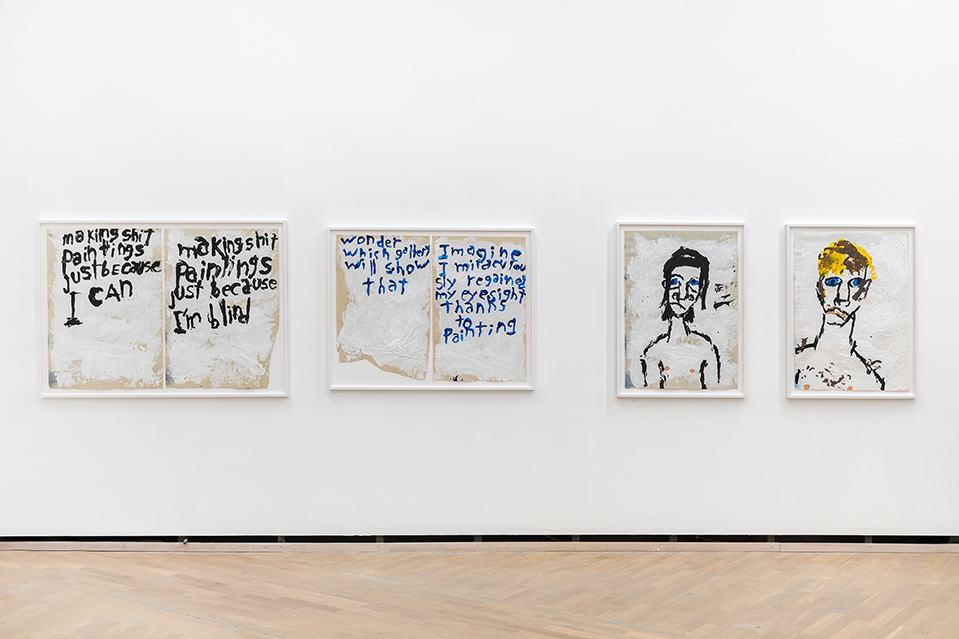 making shit
paintings
just because
I CAN
making shit
paintings
just because
I'm blind
wonder
which gallery
will show
that
Imagine
I miraculou
sly regained
my eyesight
thanks
to
painting